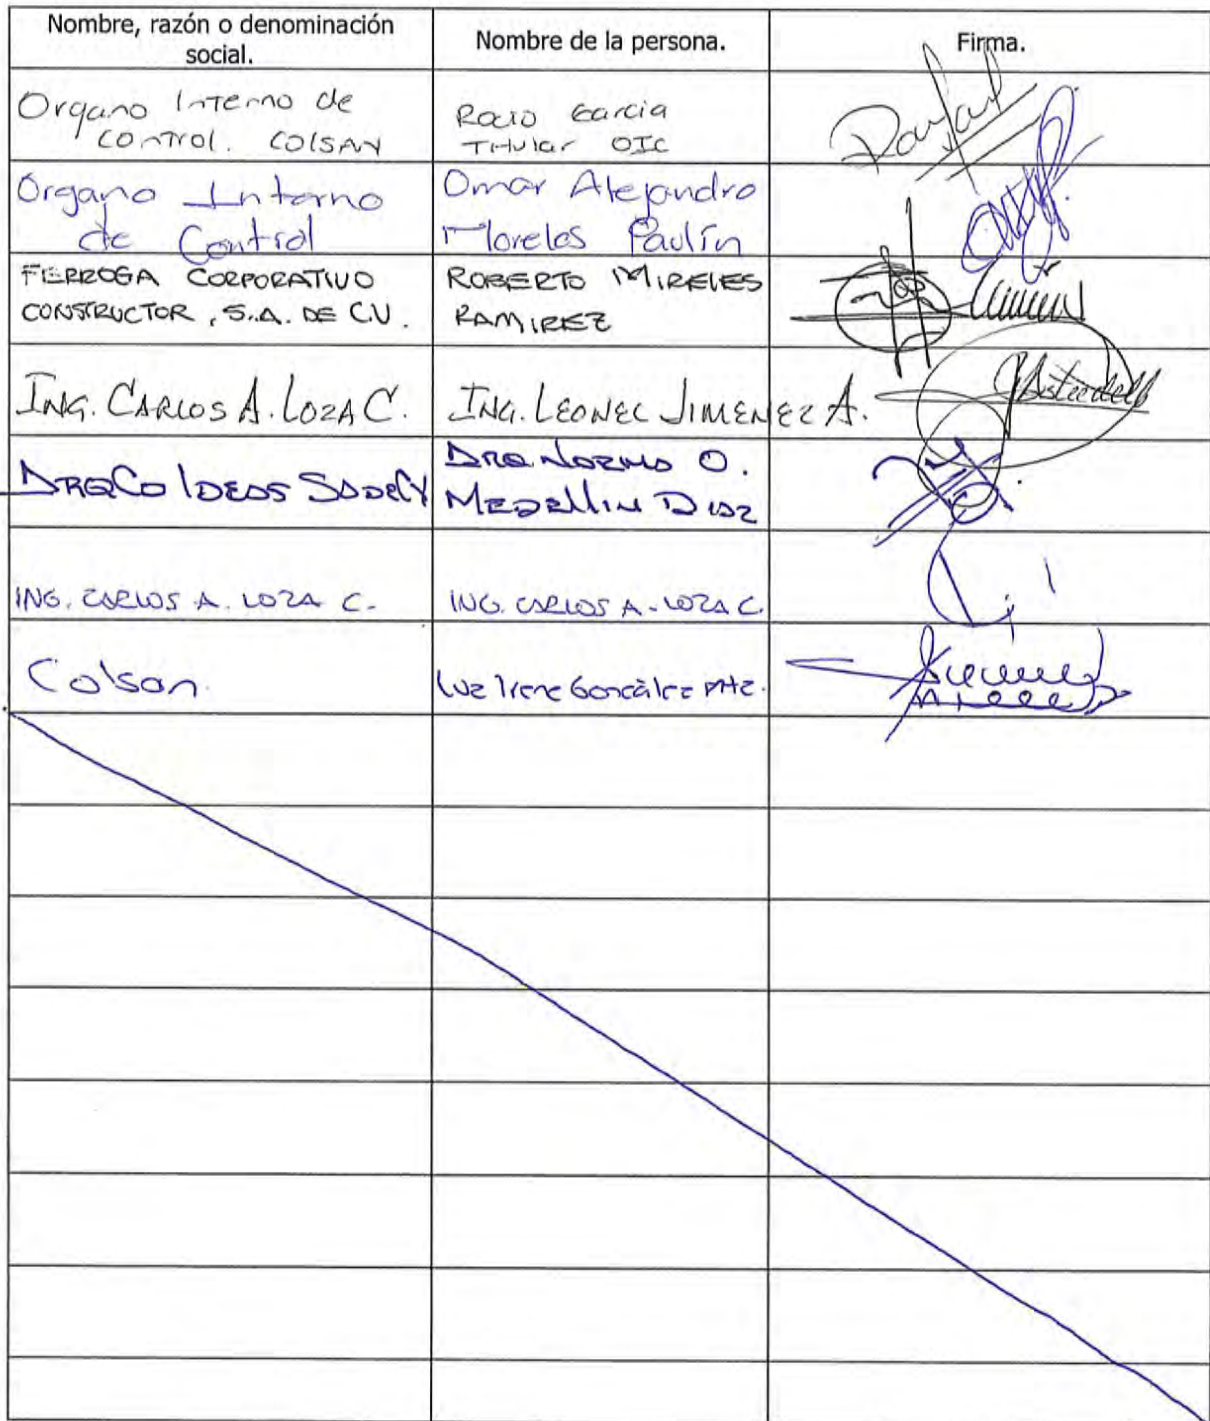 Nombre, razón o denominación
social.
Nombre de la persona.
Firma.
Organo Interno de
Control. COLSAN
Rocio Garcia
Titular OIC
Organo Interno
de Control
Omar Alejandro
Morelos Paulín
FERROGA CORPORATIVO
CONSTRUCTOR, S.A. DE C.V.
ROBERTO MIRELES
RAMIREZ
ING. CARLOS A. LOZA C.
ING. LEONEL JIMENEZ A.
ARQCO IDEAS SADECV
ARQ. NORMA O.
MEDELLIN DIAZ
ING. CARLOS A. LOZA C.
ING. CARLOS A. LOZA C.
Colsan.
Luz Irene González Mtz.